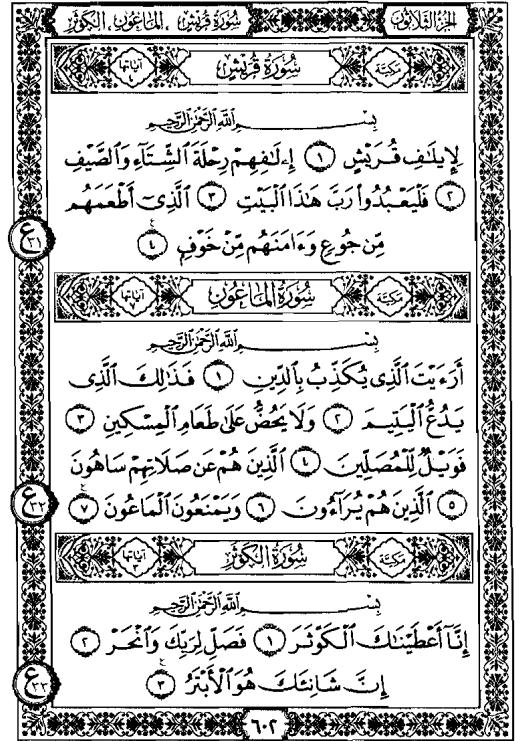 الجزء الثلاثون سورة قريش ، الماعون ، الكوثر
مكية سورة قريش آياتها ٤
بِسْمِ اللَّهِ الرَّحْمَٰنِ الرَّحِيمِ
لِإِيلَٰفِ قُرَيْشٍ ١ إِۦلَٰفِهِمْ رِحْلَةَ ٱلشِّتَآءِ وَٱلصَّيْفِ
٢ فَلْيَعْبُدُوا۟ رَبَّ هَٰذَا ٱلْبَيْتِ ٣ ٱلَّذِىٓ أَطْعَمَهُم
مِّن جُوعٍ وَءَامَنَهُم مِّنْ خَوْفٍ ٤
ع ٣١
مكية سورة الماعون آياتها ٧
بِسْمِ اللَّهِ الرَّحْمَٰنِ الرَّحِيمِ
أَرَءَيْتَ ٱلَّذِى يُكَذِّبُ بِٱلدِّينِ ١ فَذَٰلِكَ ٱلَّذِى
يَدُعُّ ٱلْيَتِيمَ ٢ وَلَا يَحُضُّ عَلَىٰ طَعَامِ ٱلْمِسْكِينِ ٣
فَوَيْلٌ لِّلْمُصَلِّينَ ٤ ٱلَّذِينَ هُمْ عَن صَلَاتِهِمْ سَاهُونَ
٥ ٱلَّذِينَ هُمْ يُرَآءُونَ ٦ وَيَمْنَعُونَ ٱلْمَاعُونَ ٧
ع ٣٢
مكية سورة الكوثر آياتها ٣
بِسْمِ اللَّهِ الرَّحْمَٰنِ الرَّحِيمِ
إِنَّآ أَعْطَيْنَٰكَ ٱلْكَوْثَرَ ١ فَصَلِّ لِرَبِّكَ وَٱنْحَرْ ٢
إِنَّ شَانِئَكَ هُوَ ٱلْأَبْتَرُ ٣
ع ٣٣
٦٠٢